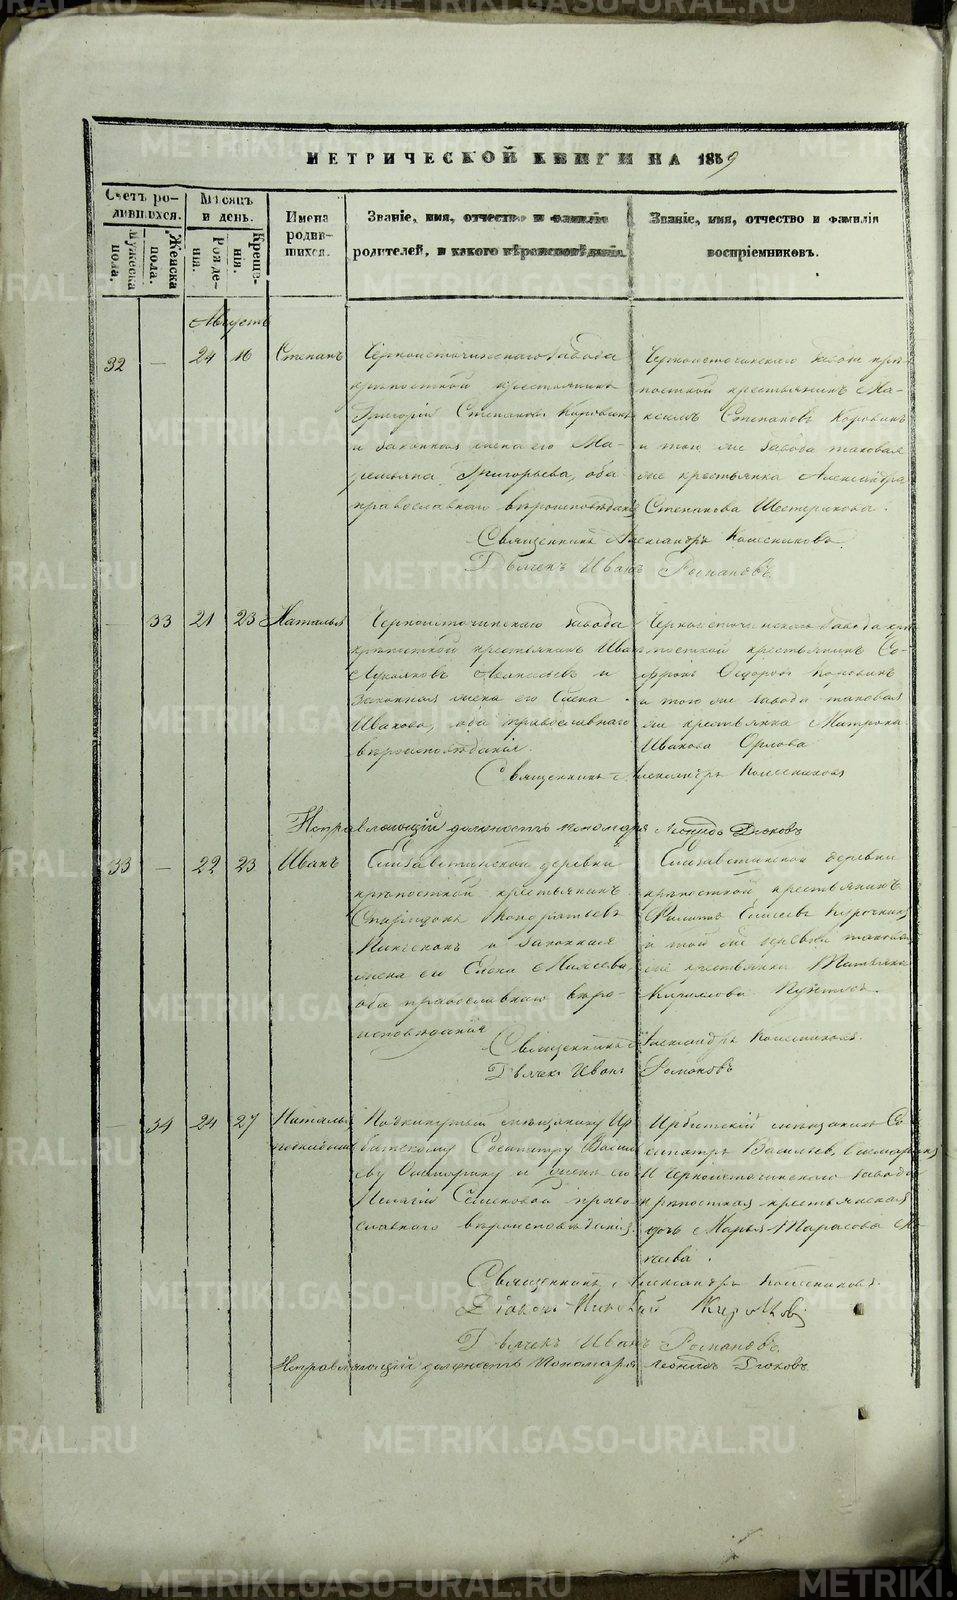 МЕТРИЧЕСКОЙ КНИГИ НА 1859
Счетъ родившихся.
Мужеска пола.
Женска пола.
Мѣсяцъ и день.
Рожденія.
Крещенія.
Имена родившихся.
Званіе, имя, отчество и фамилія родителей, и какого вѣроисповѣданія.
Званіе, имя, отчество и фамилія воспріемниковъ.
Августъ
32 — 24 16 Степанъ
Черноисточинскаго завода
крѣпостной крестьянинъ
Григорій Степановъ Коровинъ
и законная жена его Ма-
Григорьева, оба
православнаго вѣроисповѣданія
Черноисточинскаго завода крѣ-
постной крестьянинъ Ма-
ксимъ Степановъ Коровинъ
и того же завода таковая
же крестьянка Александра
Степанова Шестерикова.
Священникъ Александръ Колесниковъ.
Дьячекъ Иванъ Романовъ
— 33 21 23 Наталья
Черноисточинскаго завода
крѣпостной крестьянинъ Иванъ
и
законная жена его Елена
Иванова, оба православнаго
вѣроисповѣданія.
Черноисточинскаго завода крѣ-
постной крестьянинъ Со-
фронъ Ѳедоровъ Коровинъ
и того же завода таковая
же крестьянка Матрона
Иванова Орлова
Священникъ Александръ Колесниковъ
Исправляющій должность пономаря Леонидъ Дюковъ
33 — 22 23 Иванъ
Елизаветинской деревни
крѣпостной крестьянинъ
Спиридонъ Кондратьевъ
и законная
жена его Елена
оба православнаго вѣро-
исповѣданія
Елизаветинской деревни
крѣпостной крестьянинъ
Елисеевъ
и той же деревни таковая
же крестьянка Татьяна
Кириллова
Священникъ Александръ Колесниковъ.
Дьячекъ Иванъ Романовъ
— 34 24 27 Наталья
подкидышъ
Подкинутый мѣщанину Ир-
битскому Сосипатру Василь-
еву и женѣ его
Пелагіи Семеновой право-
славнаго вѣроисповѣданія.
Ирбитскій мѣщанинъ Со-
сипатръ Васильевъ
и Черноисточинскаго завода
крѣпостная крестьянская
дочь Марья Тарасова
Священникъ Александръ Колесниковъ.
Діаконъ Николай
Дьячекъ Иванъ Романовъ
Исправляющій должность пономаря Леонидъ Дюковъ
METRIKI.GASO-URAL.RU